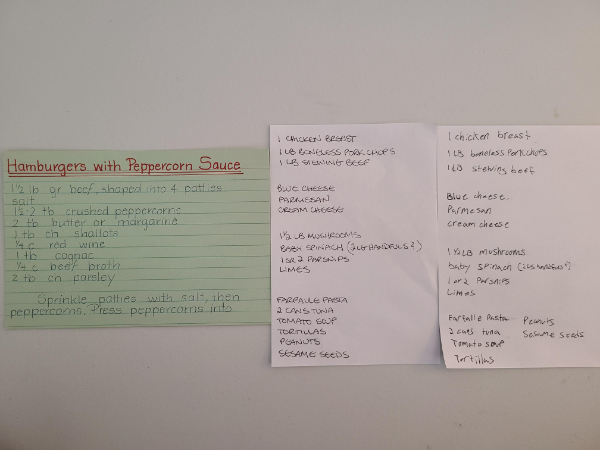 Hamburgers with Peppercorn Sauce
1½ lb gr beef, shaped into 4 patties
salt
1½-2 tb crushed peppercorns
2 tb butter or margarine
tb ch shallots
¼ c red wine
1 tb cognac
¼ c beef broth
2 tb ch parsley
Sprinkle patties with salt, then
peppercorns. Press peppercorns into
1 CHICKEN BREAST
1 LB BONELESS PORK CHOPS
1 LB STEWING BEEF
BLUE CHEESE
PARMESAN
CREAM CHEESE
1½ LB MUSHROOMS
BABY SPINACH (2 LG HANDFULS?)
1 OR 2 PARSNIPS
LIMES
FARFALLE PASTA
2 CANS TUNA
TOMATO SOUP
TORTILLAS
PEANUTS
SESAME SEEDS
1 chicken breast
1 LB boneless Pork chops
1 LB stewing beef
Blue cheese
Parmesan
cream cheese
1½ LB mushrooms
baby spinach
1 or 2 Parsnips
Limes
Farfalle Pasta Peanuts
2 cans tuna Sesame seeds
Tomato soup
Tortillas